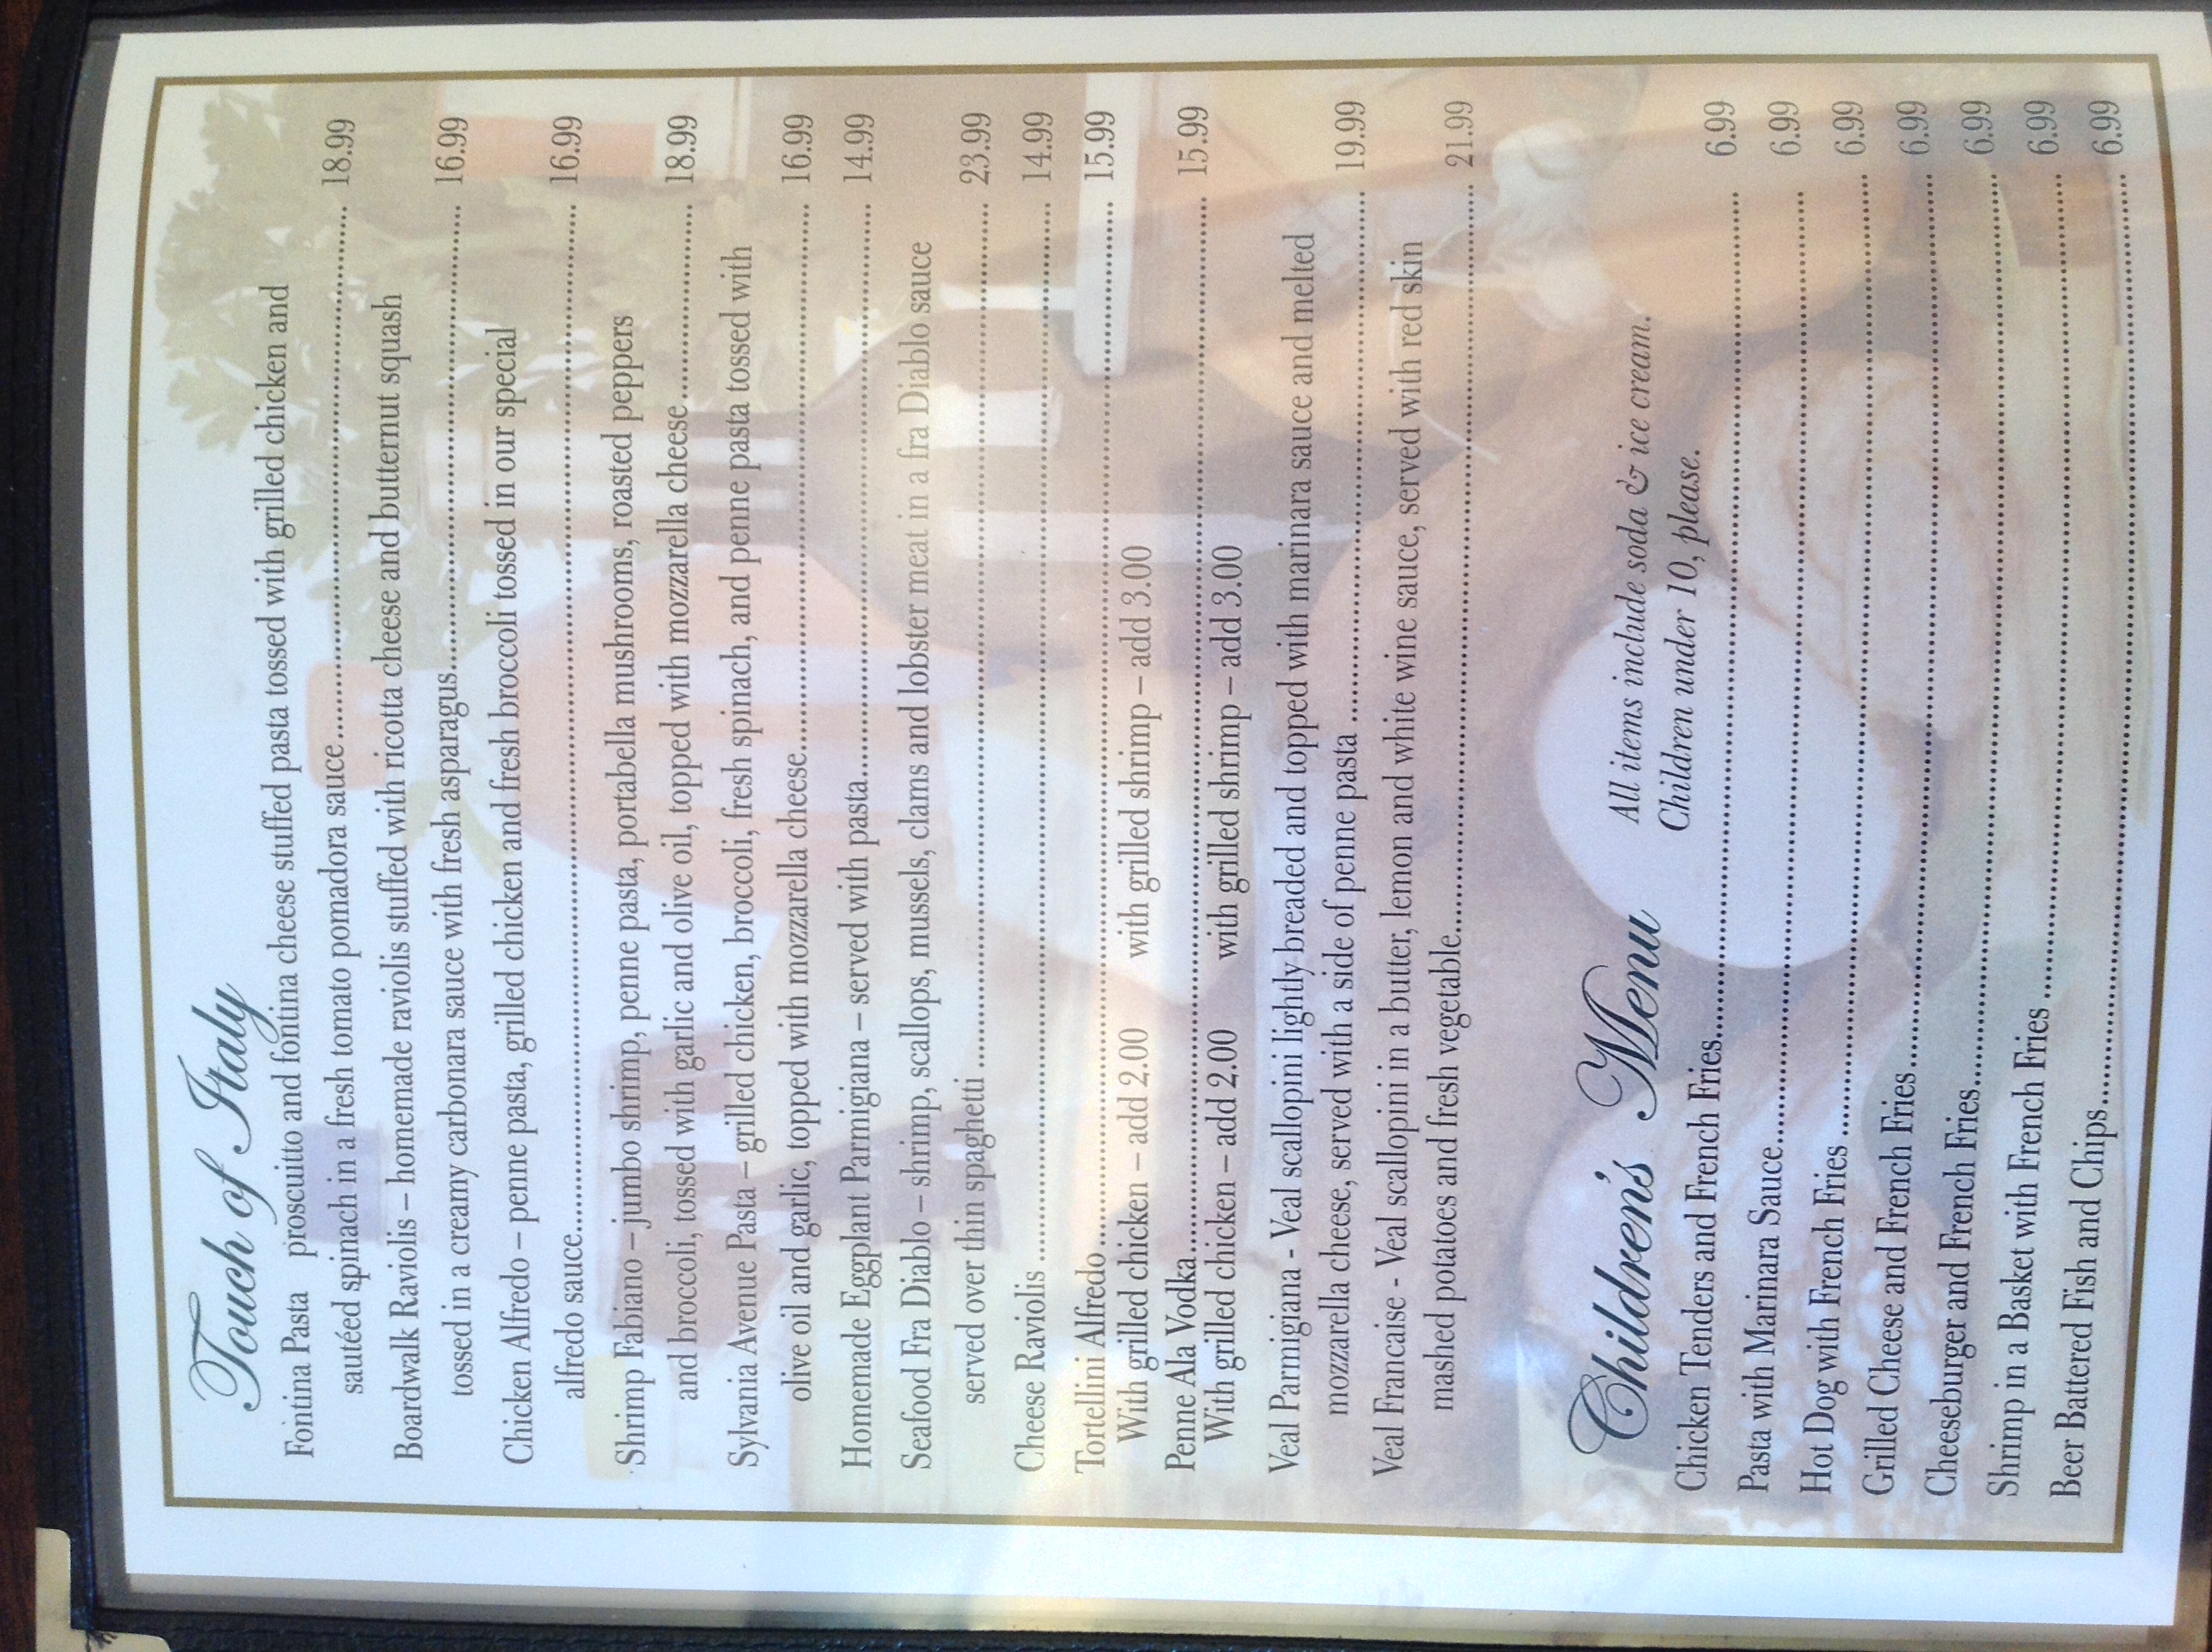 Touch of Italy
Fontina Pasta proscuitto and fontina cheese stuffed pasta tossed with grilled chicken and
sautéed spinach in a fresh tomato pomadora sauce........ 18.99
Boardwalk Raviolis – homemade raviolis stuffed with ricotta cheese and butternut squash
tossed in a creamy carbonara sauce with fresh asparagus........ 16.99
Chicken Alfredo – penne pasta, grilled chicken and fresh broccoli tossed in our special
alfredo sauce........ 16.99
Shrimp Fabiano – jumbo shrimp, penne pasta, portabella mushrooms, roasted peppers
and broccoli, tossed with garlic and olive oil, topped with mozzarella cheese........ 18.99
Sylvania Avenue Pasta – grilled chicken, broccoli, fresh spinach, and penne pasta tossed with
olive oil and garlic, topped with mozzarella cheese........ 16.99
Homemade Eggplant Parmigiana – served with pasta........ 14.99
Seafood Fra Diablo – shrimp, scallops, mussels, clams and lobster meat in a fra Diablo sauce
served over thin spaghetti ........ 23.99
Cheese Raviolis ........ 14.99
Tortellini Alfredo........ 15.99
With grilled chicken – add 2.00 with grilled shrimp – add 3.00
Penne Ala Vodka........ 15.99
With grilled chicken – add 2.00 with grilled shrimp – add 3.00
Veal Parmigiana - Veal scallopini lightly breaded and topped with marinara sauce and melted
mozzarella cheese, served with a side of penne pasta ........ 19.99
Veal Francaise - Veal scallopini in a butter, lemon and white wine sauce, served with red skin
mashed potatoes and fresh vegetable........ 21.99
Children's Menu
All items include soda & ice cream.
Children under 10, please.
Chicken Tenders and French Fries........ 6.99
Pasta with Marinara Sauce........ 6.99
Hot Dog with French Fries ........ 6.99
Grilled Cheese and French Fries........ 6.99
Cheeseburger and French Fries........ 6.99
Shrimp in a Basket with French Fries ........ 6.99
Beer Battered Fish and Chips........ 6.99